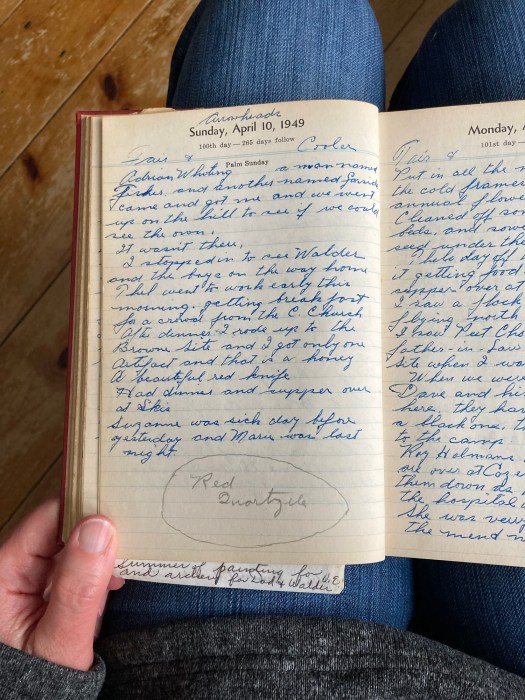 Arrowheads
Sunday, April 10, 1949
100th day—265 days follow
Fair & Cooler
Palm Sunday
Adrian Whiting a man named
Fisher, and another named
came and got me and we went
up on the hill to see if we could
see the owl.
It wasn't there.
I stopped in to see Walder
and the boys on the way home
Thel went to work early this
morning. getting breakfast
for a crowd from the C. Church
After dinner I rode up to the
Browne site and I got only one
Artifact and that is a honey
A beautiful red knife
Had dinner and supper over
at Skis
Suzanne was sick day before
yesterday and Marie was last
night.
Red
Quartzite
Summer of painting for
and archery for Dad & Walder
Monday,
101st day—
Fair &
Put in all the
the cold frames
annual flowe
Cleaned off so
beds, and sowe
seed under the
Thels day off
it getting food
supper over at
I saw a flock
flying north
I saw Pete Ch
father-in-law
site when I wa
When we we
Dave and hi
here, they ha
a black one, t
to the camp.
Roy Holmans
are over at
them down as
the hospital
She was very
the mend